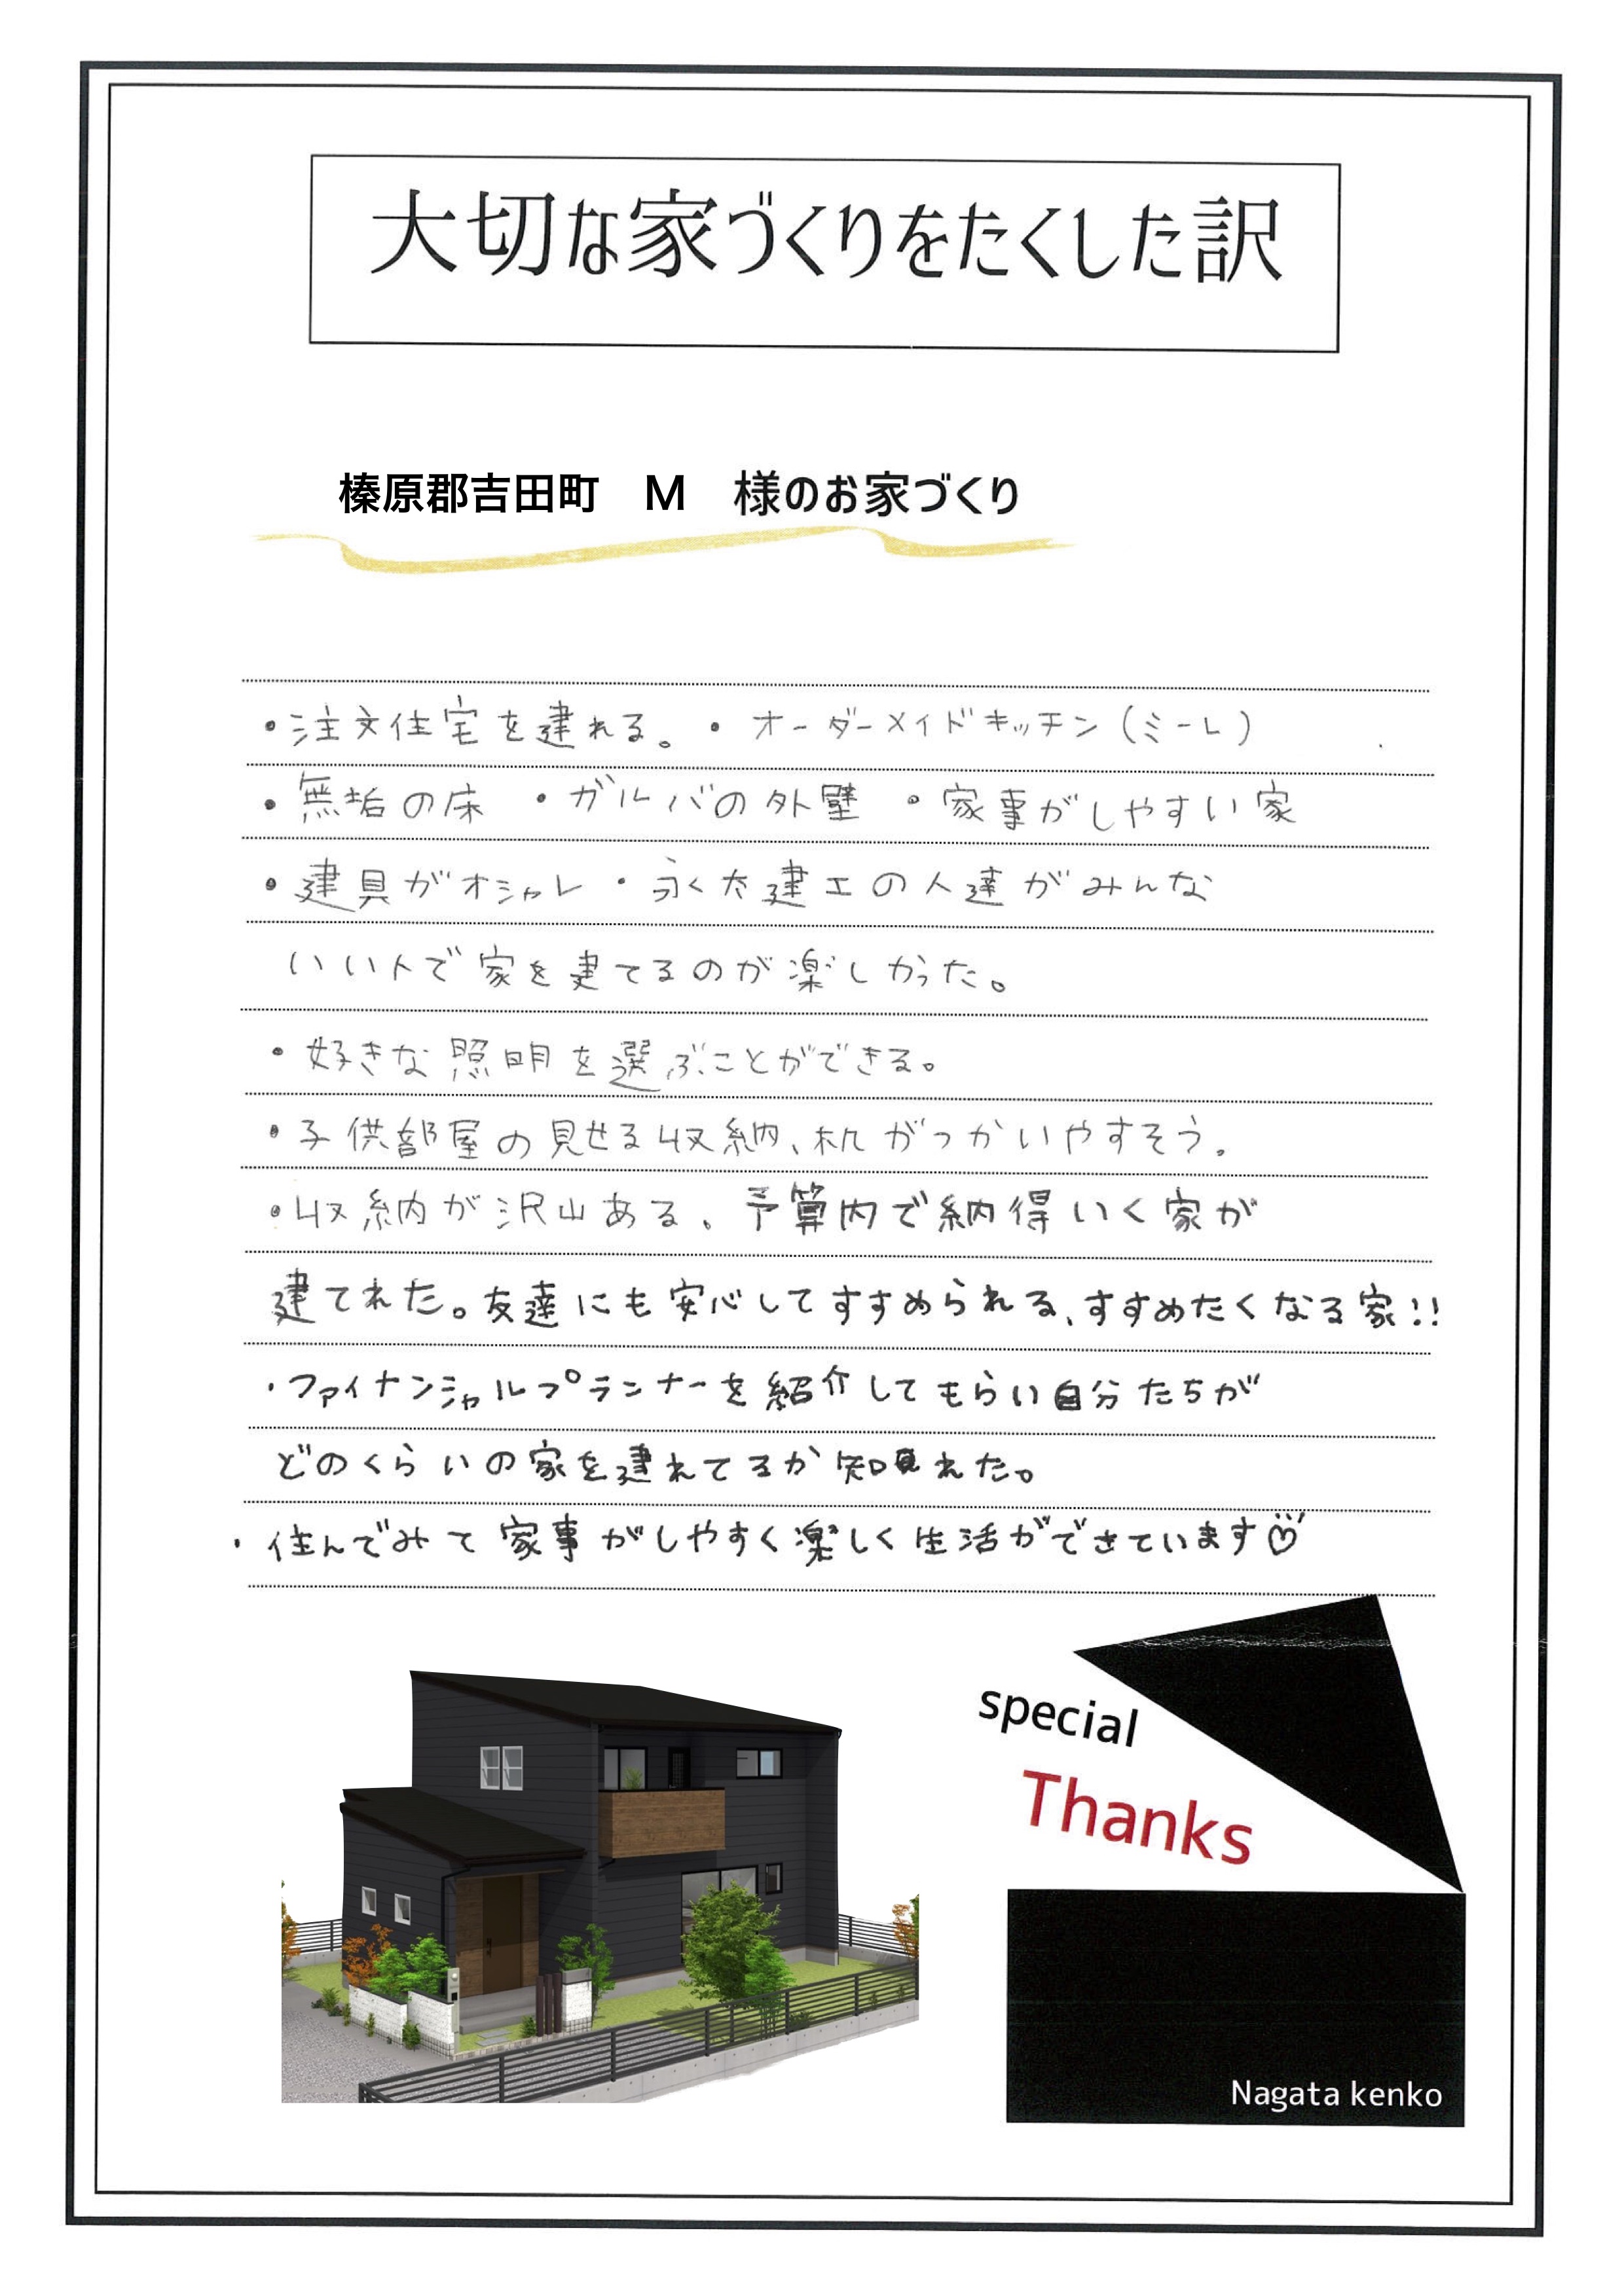 大切な家づくりをたくした訳
榛原郡吉田町　M　様のお家づくり
・注文住宅を建れる。・オーダーメイドキッチン(ミーレ)
・無垢の床　・ガルバの外壁　・家事がしやすい家
・建具がオシャレ・永た建工の人達がみんな
いい人で家を建てるのが楽しかった。
・好きな照明を選ぶことができる。
・子供部屋の見せる収納、机がつかいやすそう。
・収納が沢山ある。予算内で納得いく家が
建てれた。友達にも安心してすすめられる、すすめたくなる家!!
・ファイナンシャルプランナーを紹介してもらい自分たちが
どのくらいの家を建れてるか知れた。
・住んでみて家事がしやすく楽しく生活ができています♡
special
Thanks
Nagata kenko